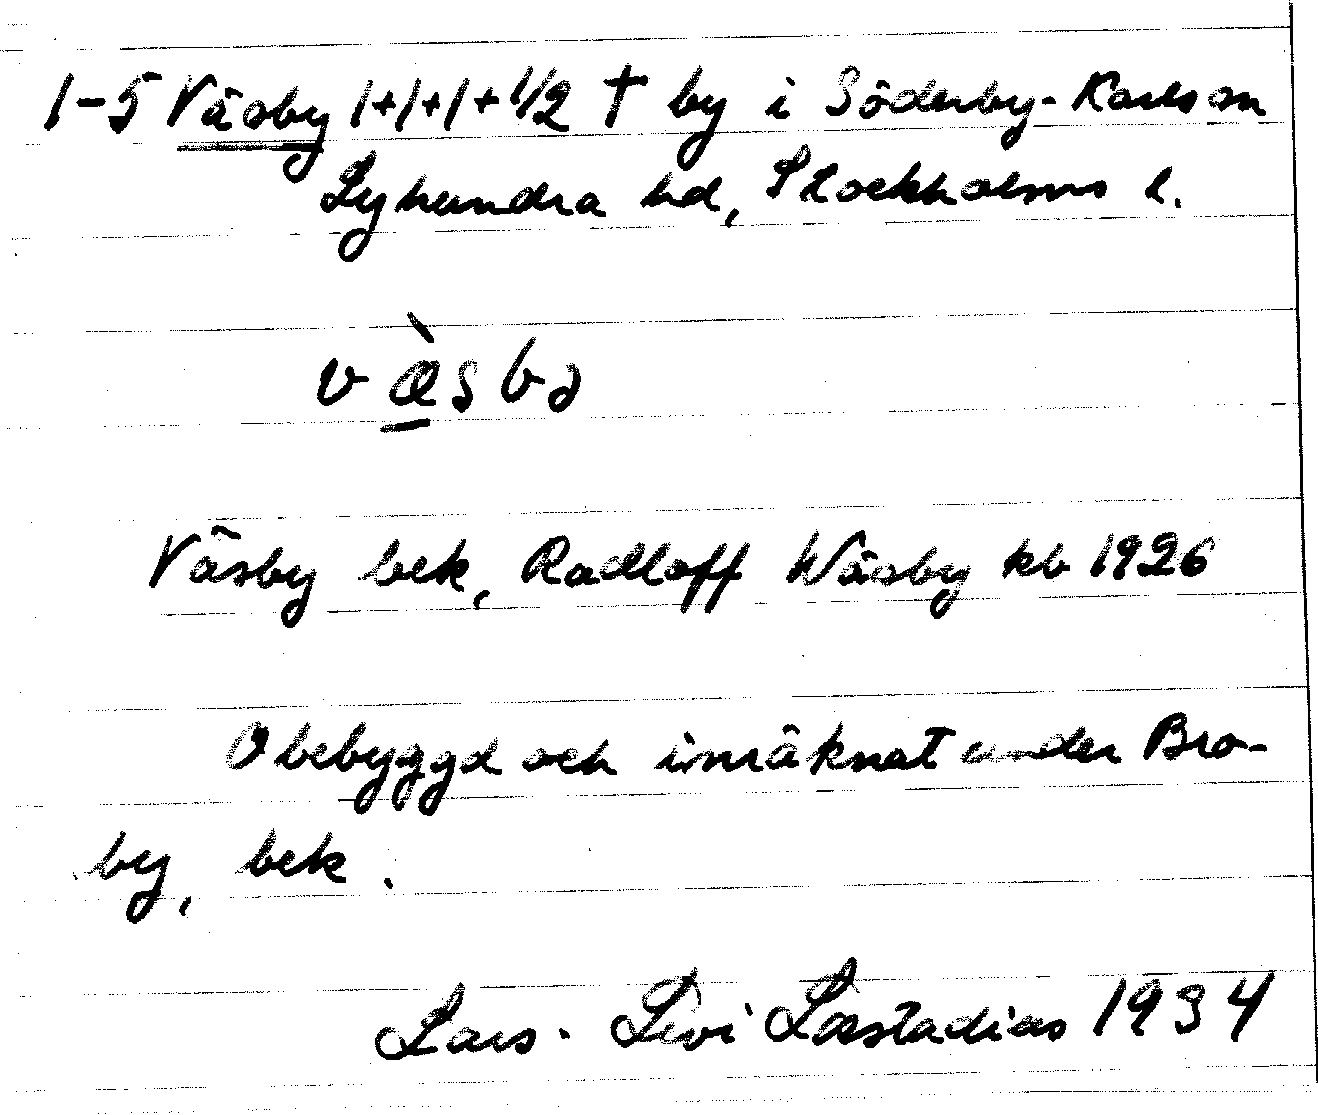 1-5 Väsby 1+1+1+1/2 † by i Söderby-Karls sn
Lyhundra hd, Stockholms l.
v æ̀ s b ə
Väsby bek, Radloff Wäsby kb 1926
Obebyggd och inräknat under Bro-
by, bek.
Lars-Levi Læstadius 1934